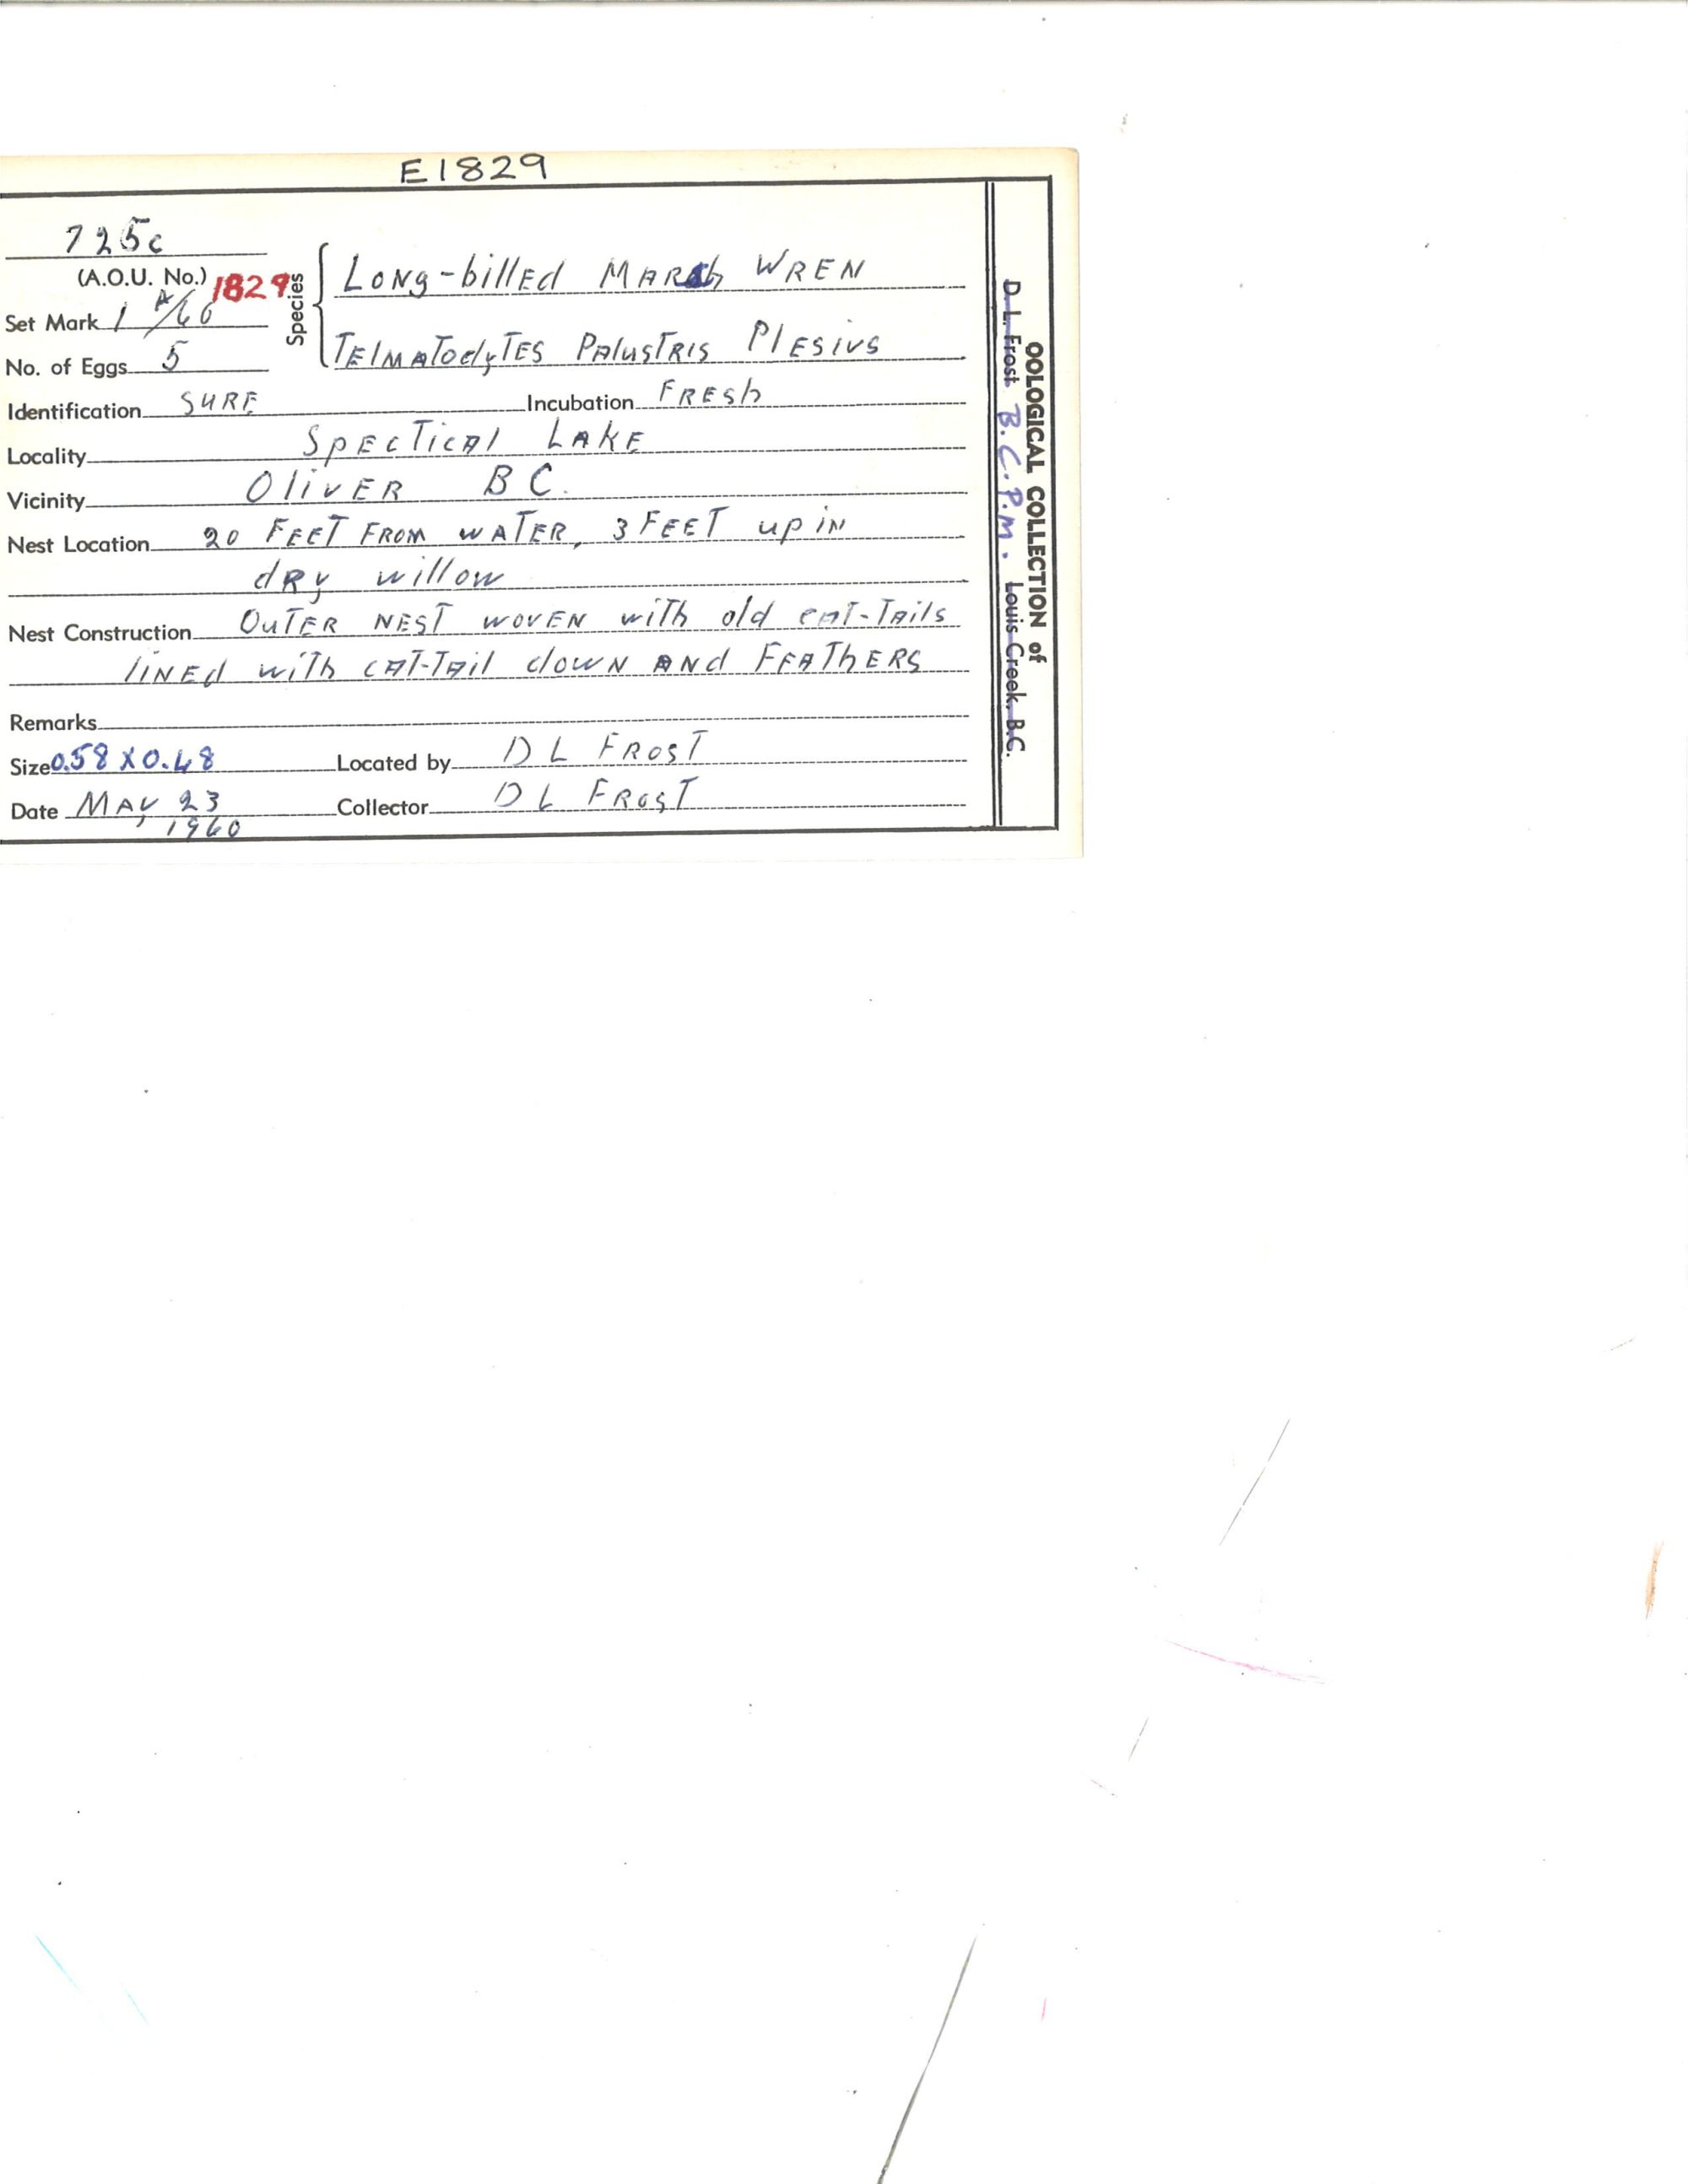 E1829
725c
(A.O.U. No.) 1829
Set Mark 1 A/60
No. of Eggs 5
Species
Long-billed Marsh Wren
Telmatodytes Palustris Plesius
Identification Sure Incubation Fresh
Locality Spectical Lake
Vicinity Oliver B C.
Nest Location 20 Feet From water, 3 Feet up in
dry willow
Nest Construction Outer nest woven with old cat-tails
lined with cat-tail down and Feathers
Remarks
Size 0.58 X 0.48 Located by D L Frost
Date May 23 Collector D L Frost
1960
OOLOGICAL COLLECTION of
D. L. Frost B.C.P.M. Louis Creek, B.C.